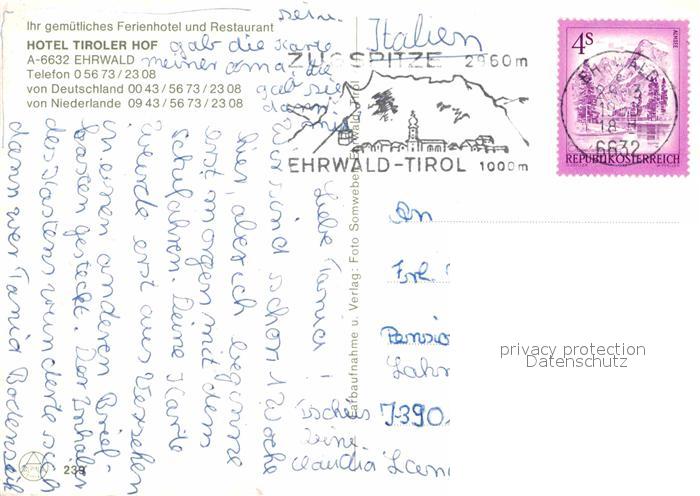 Ihr gemütliches Ferienhotel und Restaurant
HOTEL TIROLER HOF
A-6632 EHRWALD
Telefon 0 56 73 / 23 08
von Deutschland 00 43 / 56 73 / 23 08
von Niederlande 09 43 / 56 73 / 23 08
Liebe Tania!
Wir sind schon 1 Woche
hier, aber ich beginne
erst morgen mit dem
schifahren. Deine Karte
wurde erst aus Versehen
in einen anderen Brief-
kasten gesteckt. Der Inhaber
des Kastens wunderte sich
dann wer Tania Bodenseik
sein.
gab die Karte
meiner oma, die
gab sie
dann mir
Tschüss
Deine
Claudia
Italien
ZUGSPITZE 2960m
EHRWALD-TIROL 1000m
4S
ALMSEE
REPUBLIK ÖSTERREICH
EHRWALD
18
6632
Farbaufnahme u. Verlag: Foto Somweber, Ehrwald, Tirol
An
Frl
Pensio
Lahr
7390
privacy protection
Datenschutz
239